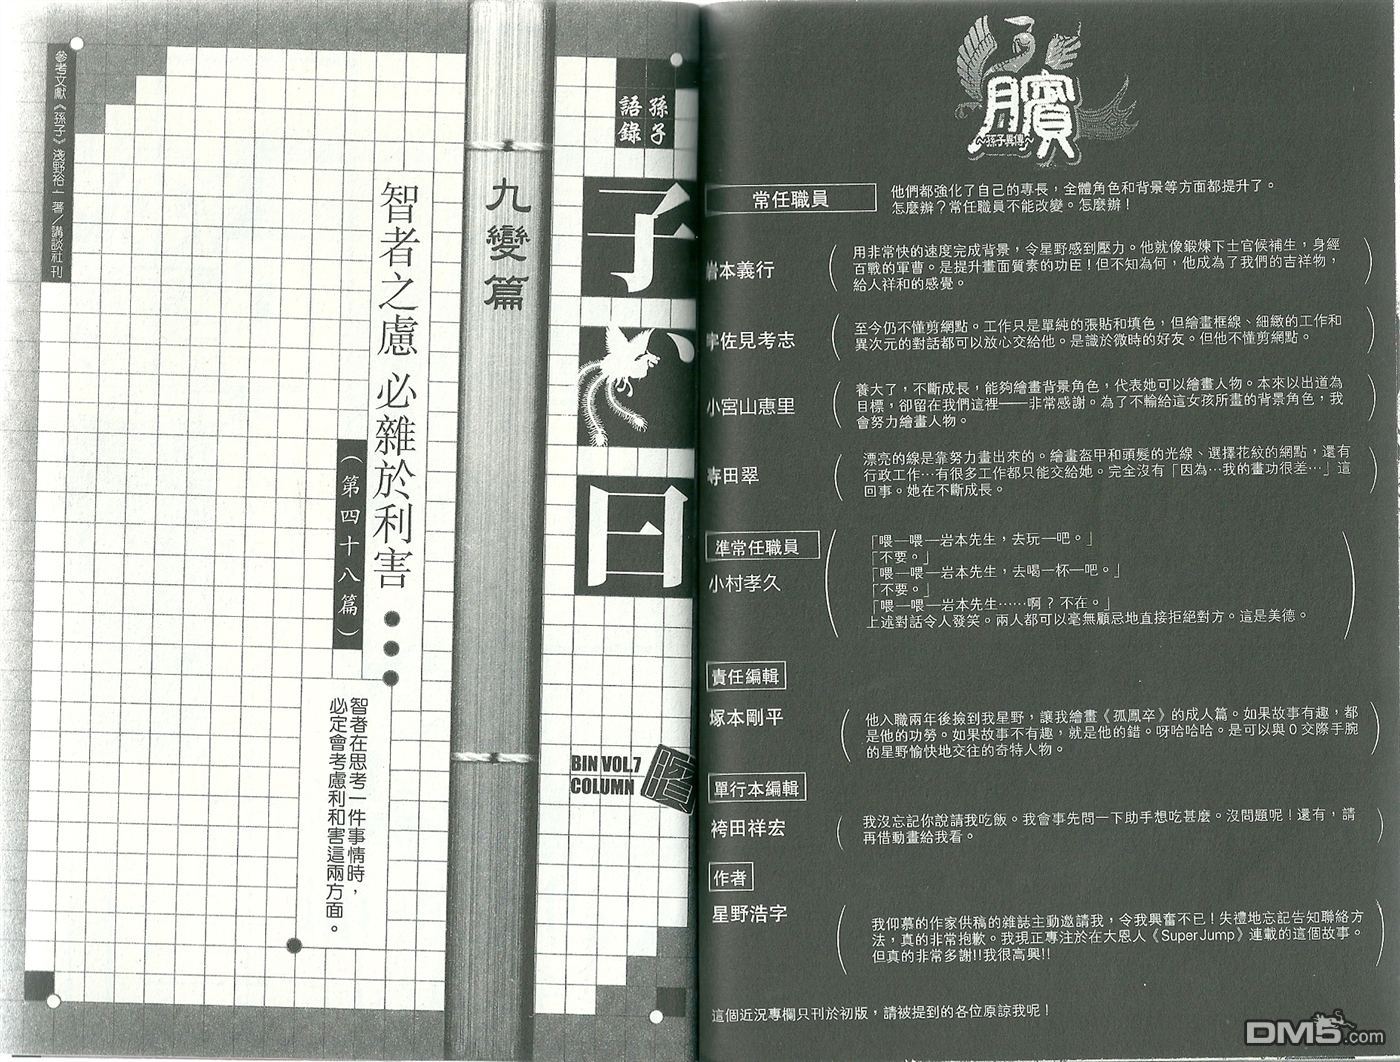 臏
~孫子異傳~
常任職員
他們都強化了自己的專長，全體角色和背景等方面都提升了。
怎麼辦？常任職員不能改變。怎麼辦！
岩本義行
用非常快的速度完成背景，令星野感到壓力。他就像鍛煉下士官候補生，身經
百戰的軍曹。是提升畫面質素的功臣！但不知為何，他成為了我們的吉祥物，
給人祥和的感覺。
宇佐見考志
至今仍不懂剪網點。工作只是單純的張貼和填色，但繪畫框線、細緻的工作和
異次元的對話都可以放心交給他。是識於微時的好友。但他不懂剪網點。
小宮山惠里
養大了，不斷成長，能夠繪畫背景角色，代表她可以繪畫人物。本來以出道為
目標，卻留在我們這裡——非常感謝。為了不輸給這女孩所畫的背景角色，我
會努力繪畫人物。
寺田翠
漂亮的線是靠努力畫出來的。繪畫盔甲和頭髮的光線、選擇花紋的網點，還有
行政工作…有很多工作都只能交給她。完全沒有「因為…我的畫功很差…」這
回事。她在不斷成長。
準常任職員
小村孝久
「喂—喂—岩本先生，去玩—吧。」
「不要。」
「喂—喂—岩本先生，去喝一杯—吧。」
「不要。」
「喂—喂—岩本先生……啊？不在。」
上述對話令人發笑。兩人都可以毫無顧忌地直接拒絕對方。這是美德。
責任編輯
塚本剛平
他入職兩年後撿到我星野，讓我繪畫《孤鳳卒》的成人篇。如果故事有趣，都
是他的功勞。如果故事不有趣，就是他的錯。呀哈哈哈。是可以與０交際手腕
的星野愉快地交往的奇特人物。
單行本編輯
袴田祥宏
我沒忘記你說請我吃飯。我會事先問一下助手想吃甚麼。沒問題呢！還有，請
再借動畫給我看。
作者
星野浩字
我仰慕的作家供稿的雜誌主動邀請我，令我興奮不已！失禮地忘記告知聯絡方
法，真的非常抱歉。我現正專注於在大恩人《Super Jump》連載的這個故事。
但真的非常多謝!!我很高興!!
這個近況專欄只刊於初版，請被提到的各位原諒我呢！
孫子
語錄
子曰
BIN VOL.7
COLUMN
臏
九變篇
智者之慮 必雜於利害
（第四十八篇）
智者在思考一件事情時，
必定會考慮利和害這兩方面。
參考文獻《孫子》淺野裕一 著／講談社刊
DM5.com